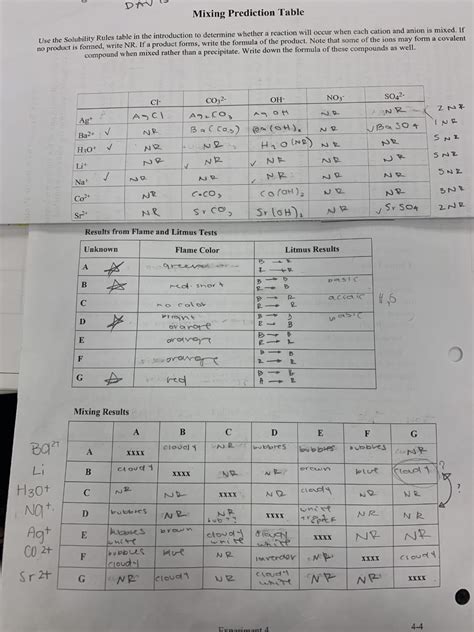 DAVIS
Mixing Prediction Table
Use the Solubility Rules table in the introduction to determine whether a reaction will occur when each cation and anion is mixed. If
no product is formed, write NR. If a product forms, write the formula of the product. Note that some of the ions may form a covalent
compound when mixed rather than a precipitate. Write down the formula of these compounds as well.
Cl- CO₃²- OH- NO₃- SO₄²-
Ag+ AgCl Ag₂CO₃ AgOH NR NR 2NR
Ba²+ ✓ NR Ba(CO₃) Ba(OH)₂ NR ✓BaSO4 1NR
H₃O+ ✓ NR NR H₂O(NR) NR NR 5NR
Li+ NR ✓ NR ✓ NR NR NR 5NR
Na+ ✓ NR NR NR NR NR 5NR
Co²+ NR CoCO₃ CO(OH)₂ NR NR 3NR
Sr²+ NR SrCO₃ Sr(OH)₂ NR ✓SrSO4 2NR
Results from Flame and Litmus Tests
Unknown Flame Color Litmus Results
A B → B
R → R
B red-short B → B basic
R → B
C no color B → R acidic
R → R
D bright orange B → B basic
R → B
E orange B → B
R → R
F orange B → B
G red B → B
Mixing Results
A B C D E F G
Ba²+ A xxxx cloudy NR bubbles bubbles bubbles NR
Li B cloudy xxxx NR NR brown blue cloudy ?
H3O+ C NR NR xxxx NR cloudy NR NR
Na+ D bubbles NR NR xxxx white NR NR
Ag+ E bubbles white brown cloudy white cloudy white xxxx NR NR
CO 2+ F bubbles cloudy blue NR NR xxxx cloudy
Sr 2+ G NR cloudy NR cloudy white NR NR xxxx
Experiment 4
4-4